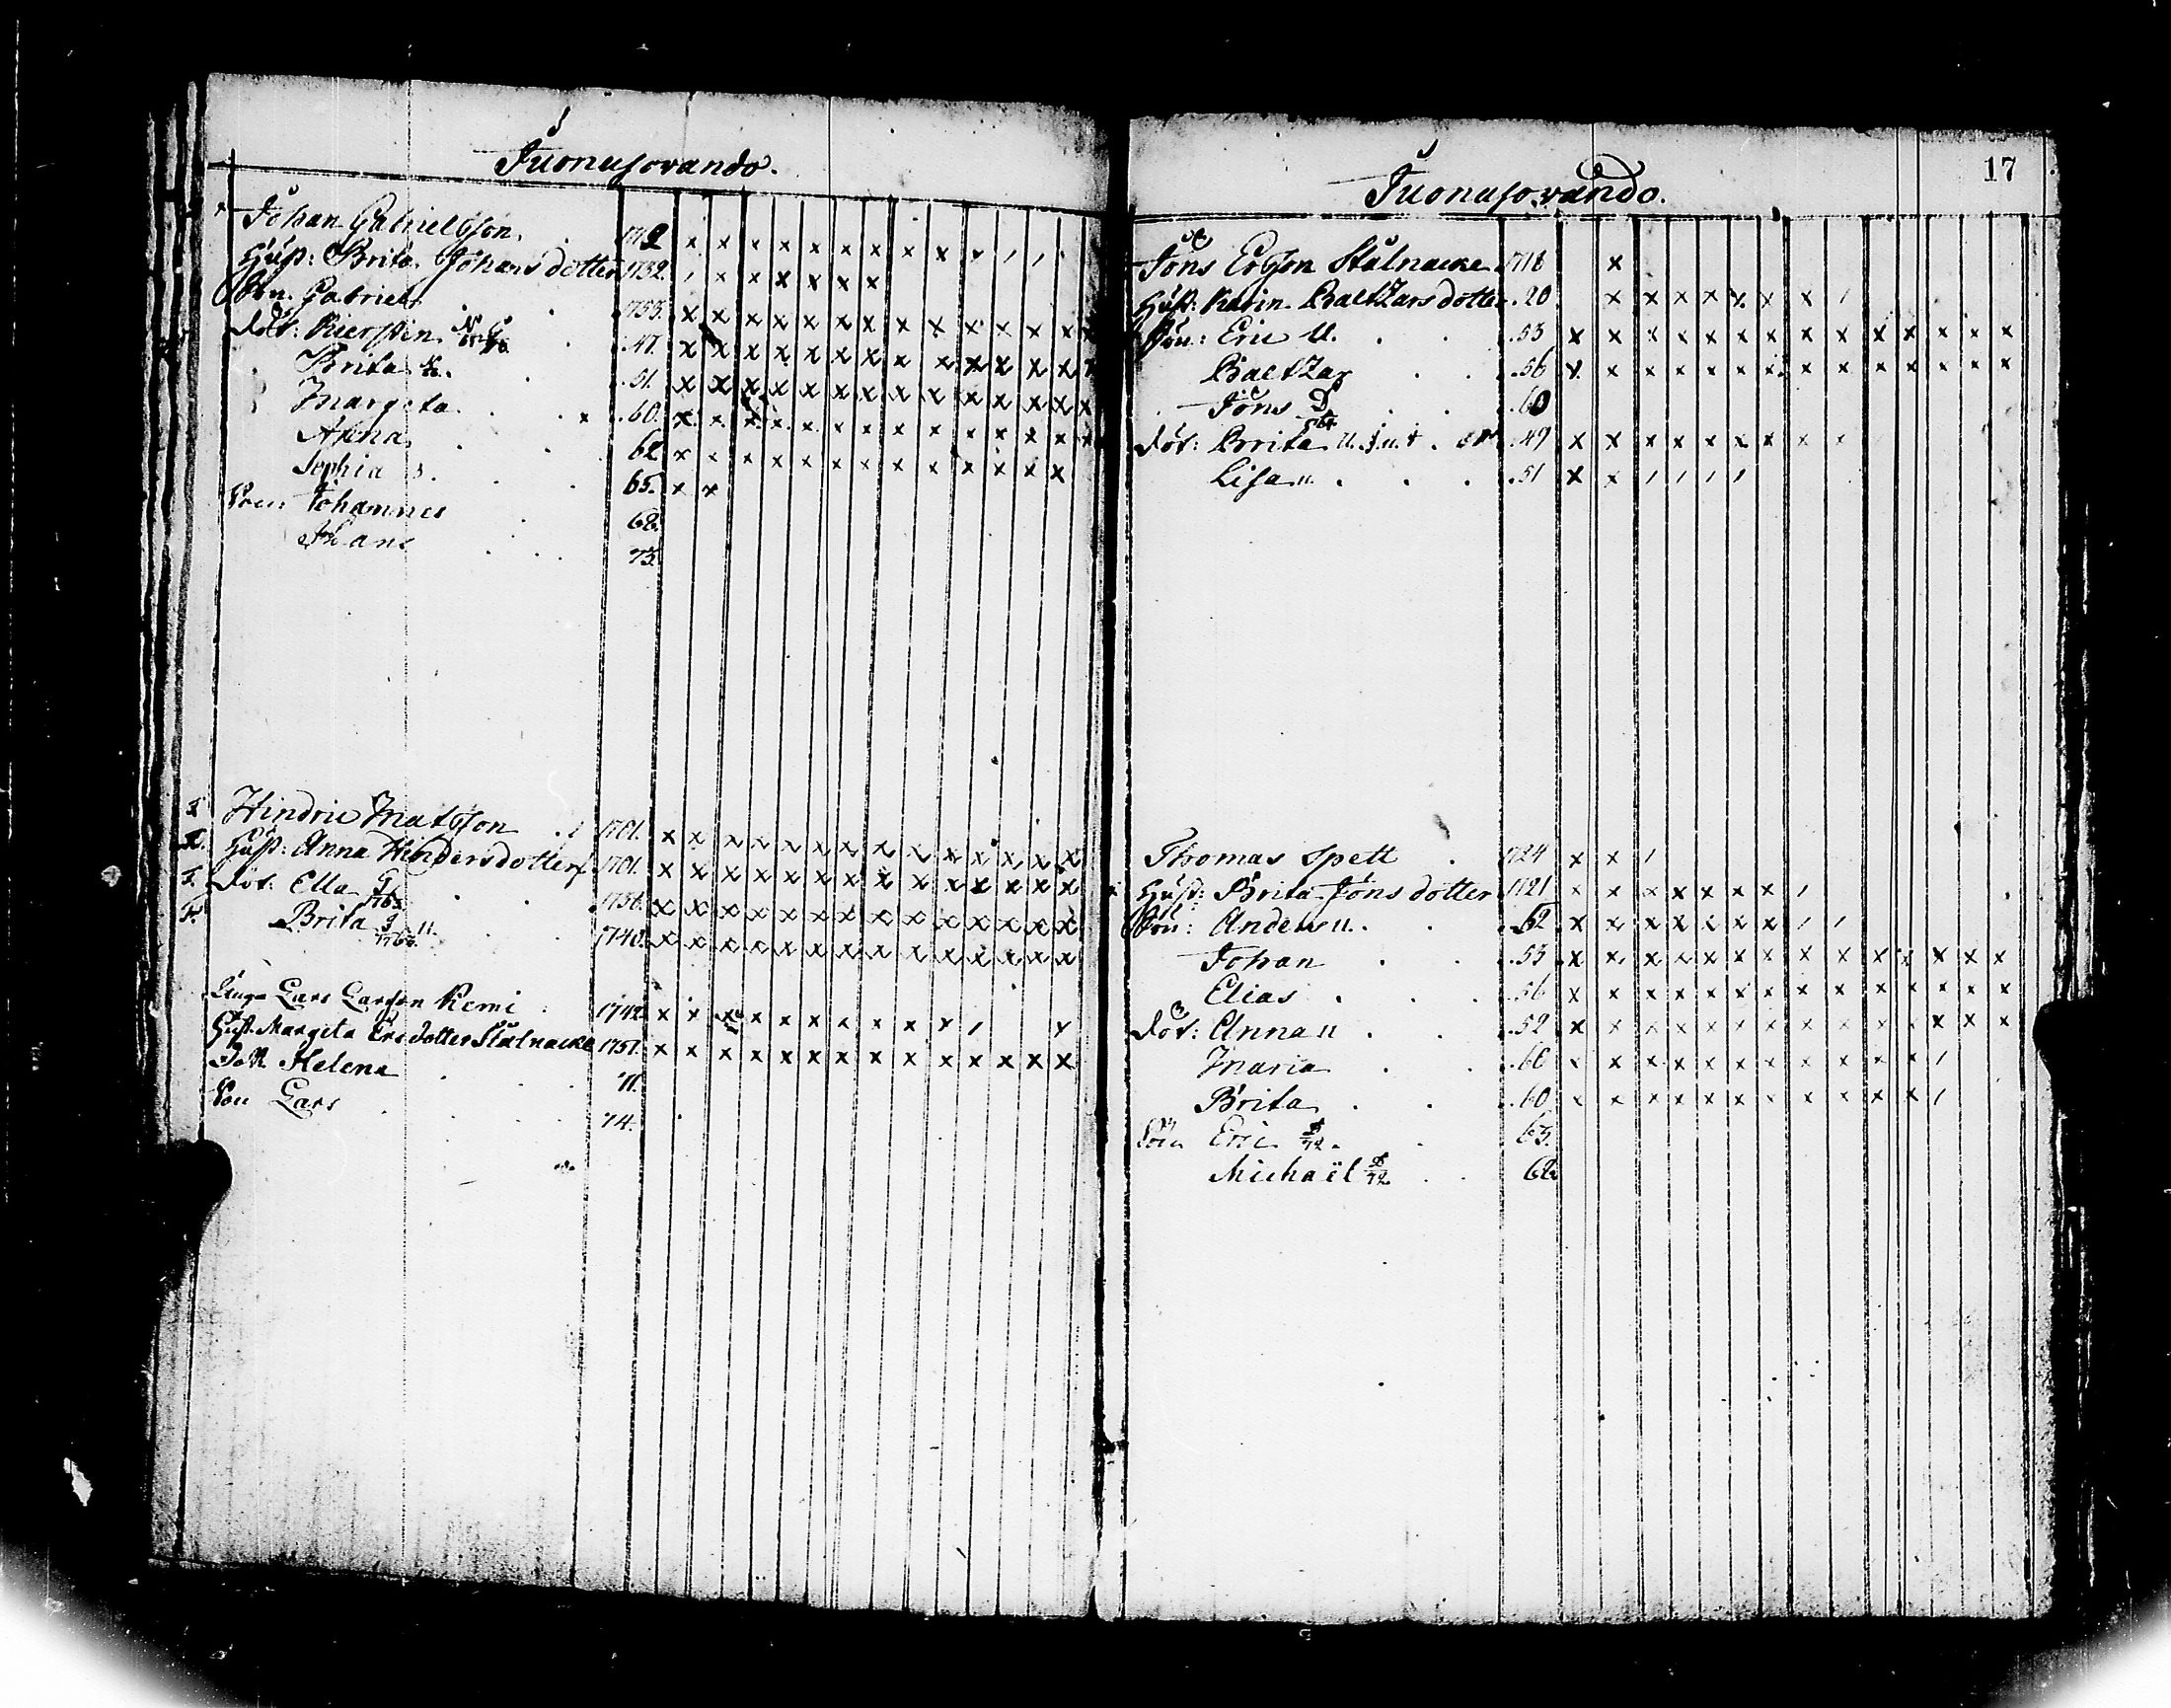 Juonusovando.
Johan Gabrielsson. 17
Hust: Brita Johans dotter 1732.
Son. Gabriel 1753.
Döt: Kierstin .47.
Brita .51.
Margeta .60.
Anna 62
Sophia 65.
Son Johannes 68.
Hans 73.
Hindric Matsson 1701.
Hust: Anna Hindersdotter 1701.
Döt: Ella 1736.
Brita 1740.
Lars Larsson Kemi 1742
Hust. Margita Ers dotter Stålnacke 1751.
Dott Helena 71.
Son Lars 74.
17
Juonusovando.
Jöns Ersson Stålnacke 1718
Hust: Karin Baltzars dotter .20
Sön: Eric u. .53
Baltzar .56
Jöns D .60
Döt: Brita .49
Lisa u. .51
Thomas Spett 1724
Hust: Brita Jöns dotter 1721
Sön: Anders u. 52
Johan .53
Elias .56
Döt: Anna u .52
Maria .60
Brita .60
Sön Eric D/72. 63.
Michaël D/72 68